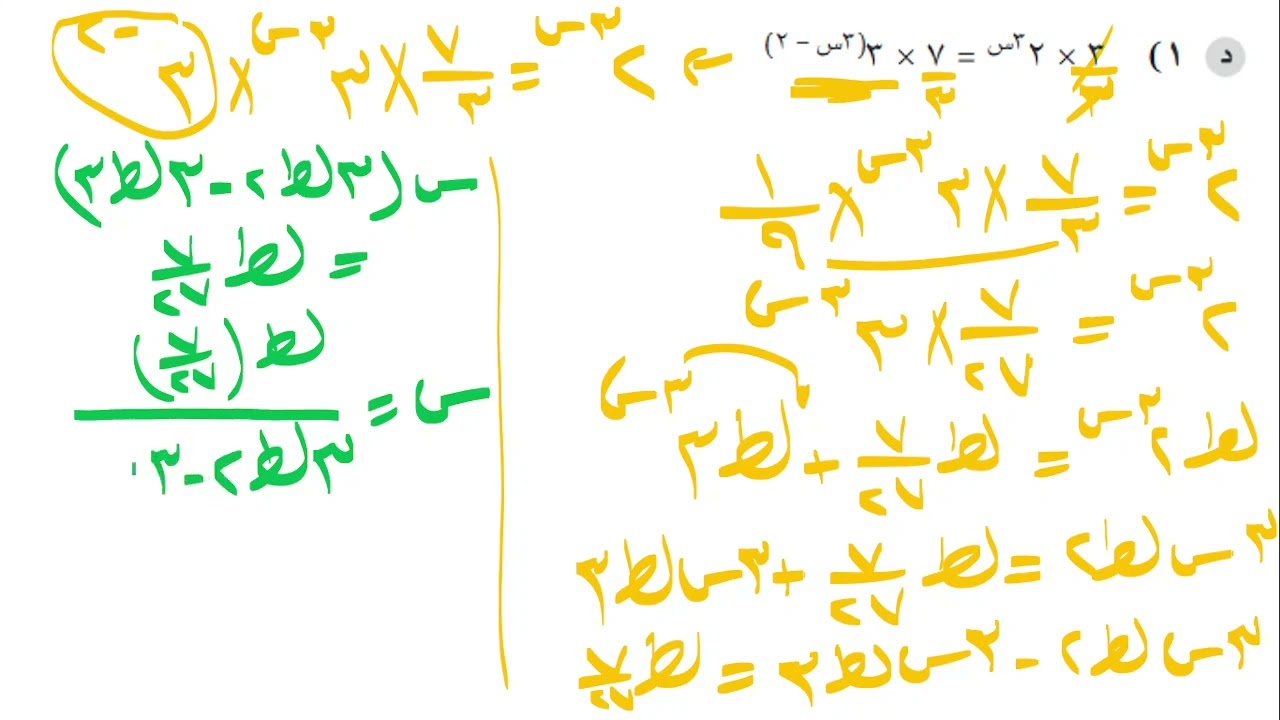 د ١) ٣ × ٢^٣س = ٧ × ٣^(٣س − ٢)
٣ ٣
← ٢^٣س = ٧/٣ × ٣^٣س × ٣^-٢
٢^٣س = ٧/٣ × ٣^٣س × ١/٩
٢^٣س = ٧/٢٧ × ٣^٣س
لط٢^٣س = لط ٧/٢٧ + لط٣^٣س
٣س لط٢ = لط ٧/٢٧ + ٣س لط٣
٣س لط٢ - ٣س لط٣ = لط ٧/٢٧
س(٣لط٢ - ٣لط٣)
= لط ٧/٢٧
س = لط(٧/٢٧)
٣لط٢ - ٣